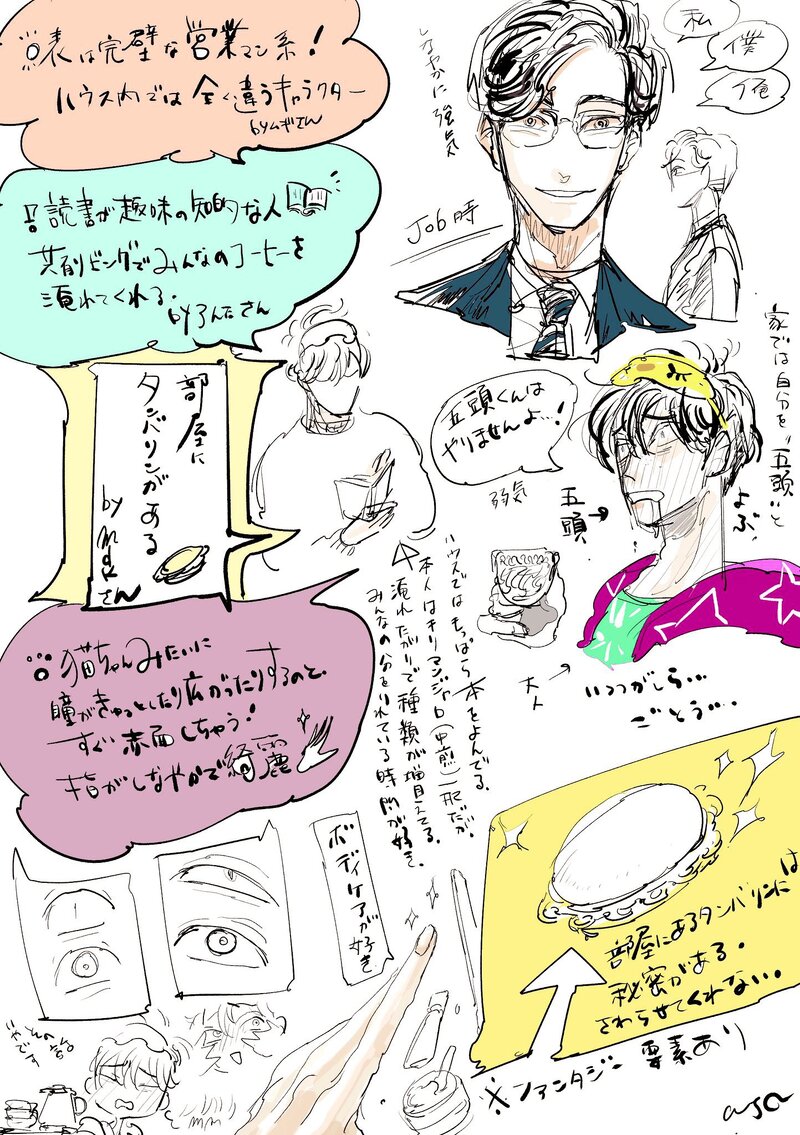 表は完璧な営業マン系!
ハウス内では全く違うキャラクター
byムギさん
読書が趣味の知的な人
共有リビングでみんなのコーヒーを
淹れてくれる。
byろんたさん
部屋に
タンバリンがある
by mgkさん
猫ちゃんみたいに
瞳がきゅっとしたり広がったりするのと、
すぐ赤面しちゃう!
指がしなやかで綺麗
しなやかに強気
Job時
私
僕
俺
家では自分を"五頭"と
よぶ
五頭くんは
やりませんよ…!
弱気
五頭
大人
いつつがしら…
ごとう…
ハウスではもっぱら本をよんでる。
本人はキリマンジャロ(中煎)一択だが、
淹れたがりで種類が増えてる。
みんなの分をいれている時間が好き。
ボディケアが好き
部屋にあるタンバリンには
秘密がある。
さわらせてくれない。
※ファンタジー要素あり